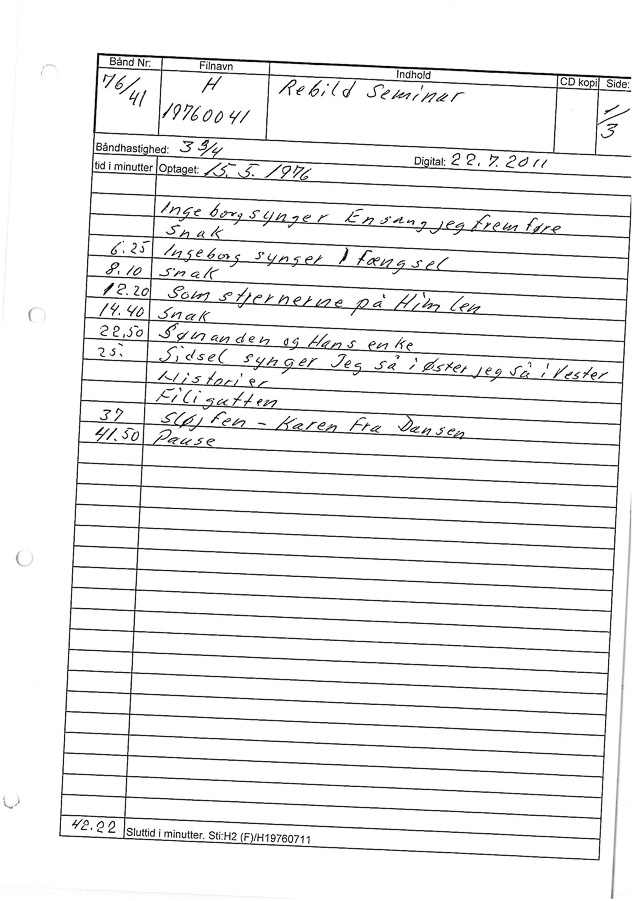 Bånd Nr: Filnavn Indhold CD kopi Side:
76/41 H 19760041 Rebild Seminar 1/3
Båndhastighed: 3 3/4 Digital: 22.7.2011
tid i minutter Optaget: 15.5.1976
Ingeborg synger En sang jeg fremføre
Snak
6.25 Ingeborg synger I fængsel
8.10 snak
12.20 Som stjernerne på Himlen
14.40 snak
22,50 Sømanden og Hans enke
25. Sidsel synger Jeg så i Øster jeg så i Vester
Historier
Filigutten
37 Sløjfen - Karen Fra Dansen
41.50 Pause
42.22 Sluttid i minutter. Sti:H2 (F)/H19760711